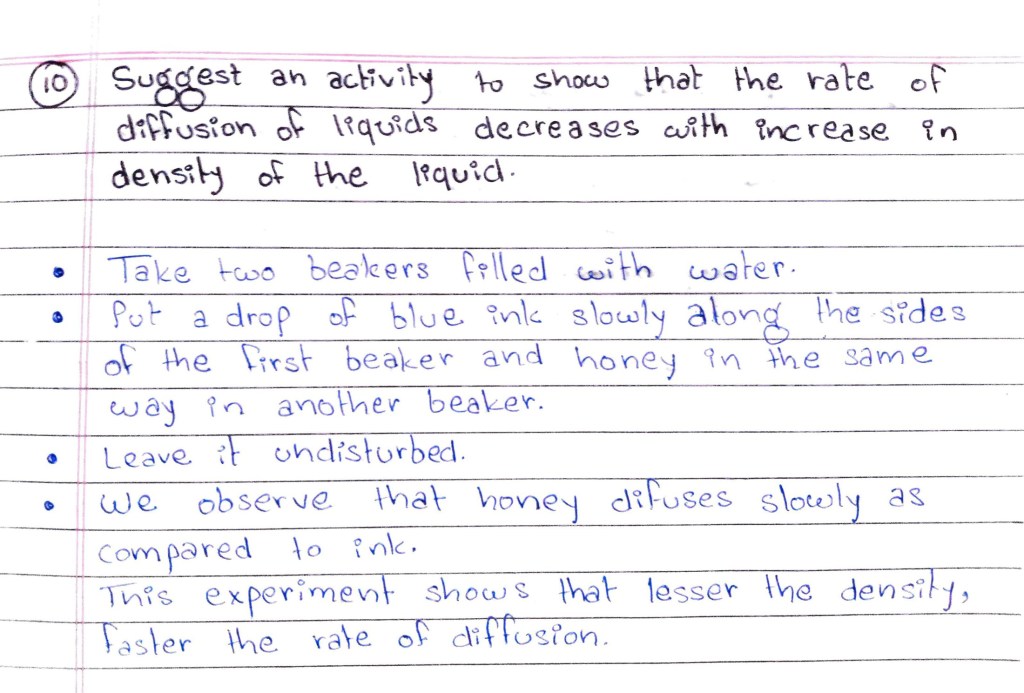 10 Suggest an activity to show that the rate of
diffusion of liquids decreases with increase in
density of the liquid.
• Take two beakers filled with water.
• Put a drop of blue ink slowly along the sides
of the first beaker and honey in the same
way in another beaker.
• Leave it undisturbed.
• We observe that honey difuses slowly as
compared to ink.
This experiment shows that lesser the density,
faster the rate of diffusion.